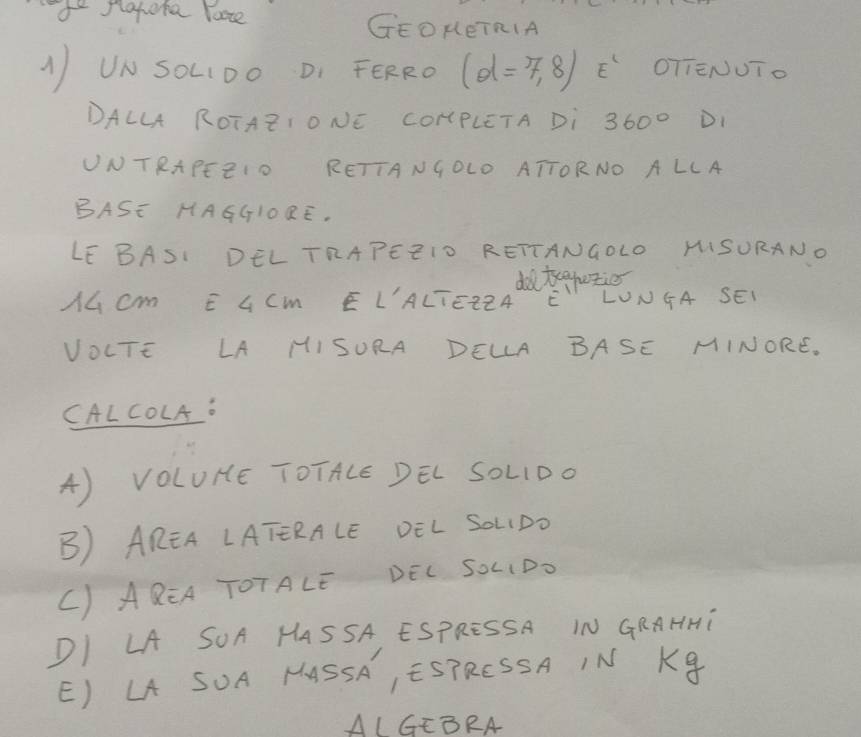 GEOMETRIA
1) UN SOLIDO DI FERRO (d=7,8) E' OTTENUTO
DALLA ROTAZIONE COMPLETA Di 360° DI
UN TRAPEZIO RETTANGOLO ATTORNO ALLA
BASE MAGGIORE.
LE BASI DEL TRAPEZIO RETTANGOLO MISURANO
14 cm E 4 cm E L'ALTEZZA del trapezio E' LUNGA SEI
VOLTE LA MISURA DELLA BASE MINORE.
CALCOLA:
A) VOLUME TOTALE DEL SOLIDO
B) AREA LATERALE DEL SOLIDO
C) AREA TOTALE DEL SOLIDO
D) LA SUA MASSA, ESPRESSA IN GRAMMi
E) LA SUA MASSA, ESPRESSA IN Kg
ALGEBRA